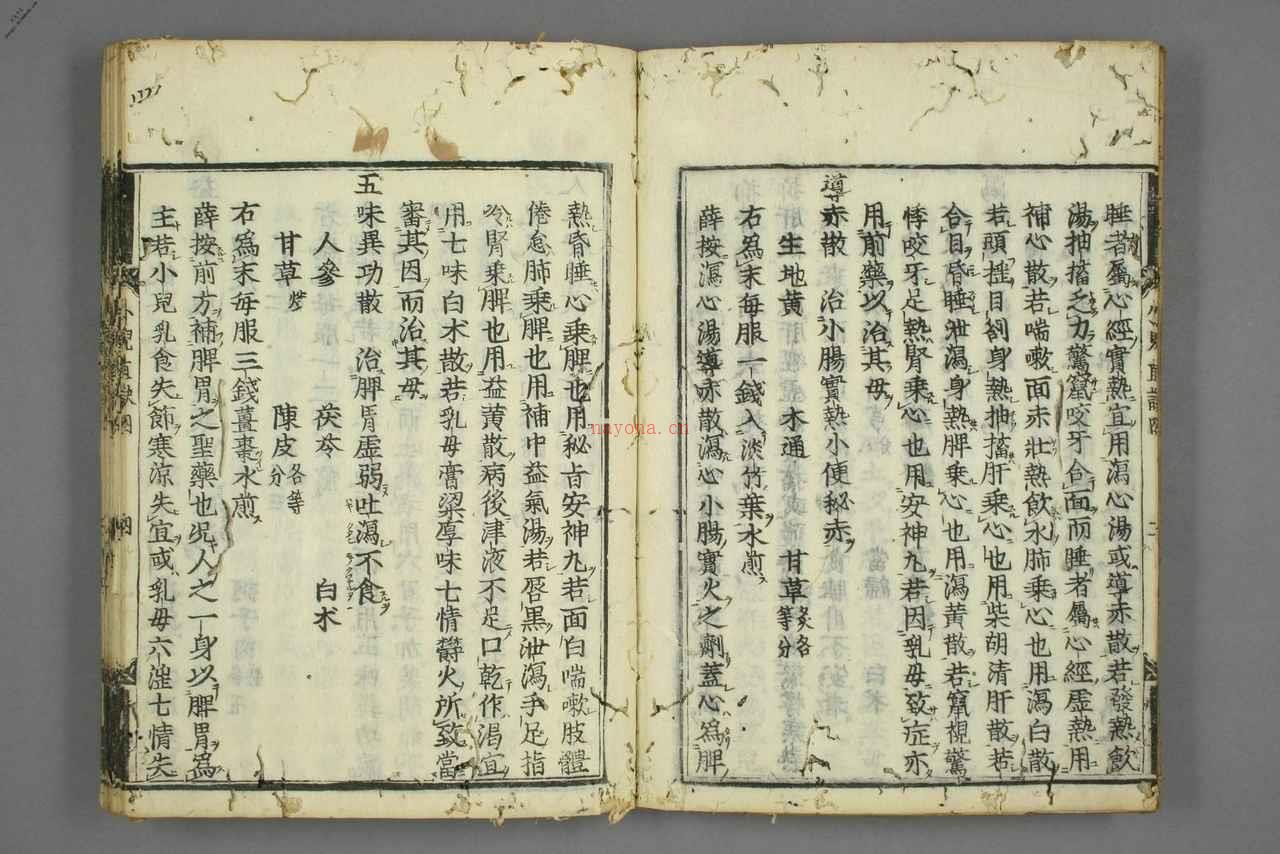 睡者屬心經實熱宜用瀉心湯或導赤散若發熱飲
湯抽搐乏力驚竄咬牙合面而睡者屬心經虛熱用
補心散若喘嗽面赤壯熱飲水肺乘心也用瀉白散
若頭搖目劄身熱抽搐肝乘心也用柴胡清肝散若
合目昏睡泄瀉身熱脾乘心也用瀉黃散若竄視驚
悸咬牙足熱腎乘心也用安神丸若因乳母致症亦
用前藥以治其母
導赤散 治小腸實熱小便秘赤
生地黃 木通 甘草炙各等分
右為末每服一錢入淡竹葉水煎
薛按瀉心湯導赤散瀉心小腸實火之劑蓋心為脾
熱昏睡心乘脾也用秘旨安神丸若面白喘嗽肢體
倦怠肺乘脾也用補中益氣湯若唇黑泄瀉手足指
冷腎乘脾也用益黃散病後津液不足口乾作渴宜
用七味白朮散若乳母膏粱厚味七情鬱火所致當
審其因而治其母
五味異功散 治脾胃虛弱吐瀉不食
人參 茯苓 白朮
甘草炒 陳皮各等分
右為末每服三錢薑棗水煎
薛按前方補脾胃之聖藥也況人之一身以脾胃為
主若小兒乳食失節寒涼失宜或乳母六淫七情失
nayona.cn